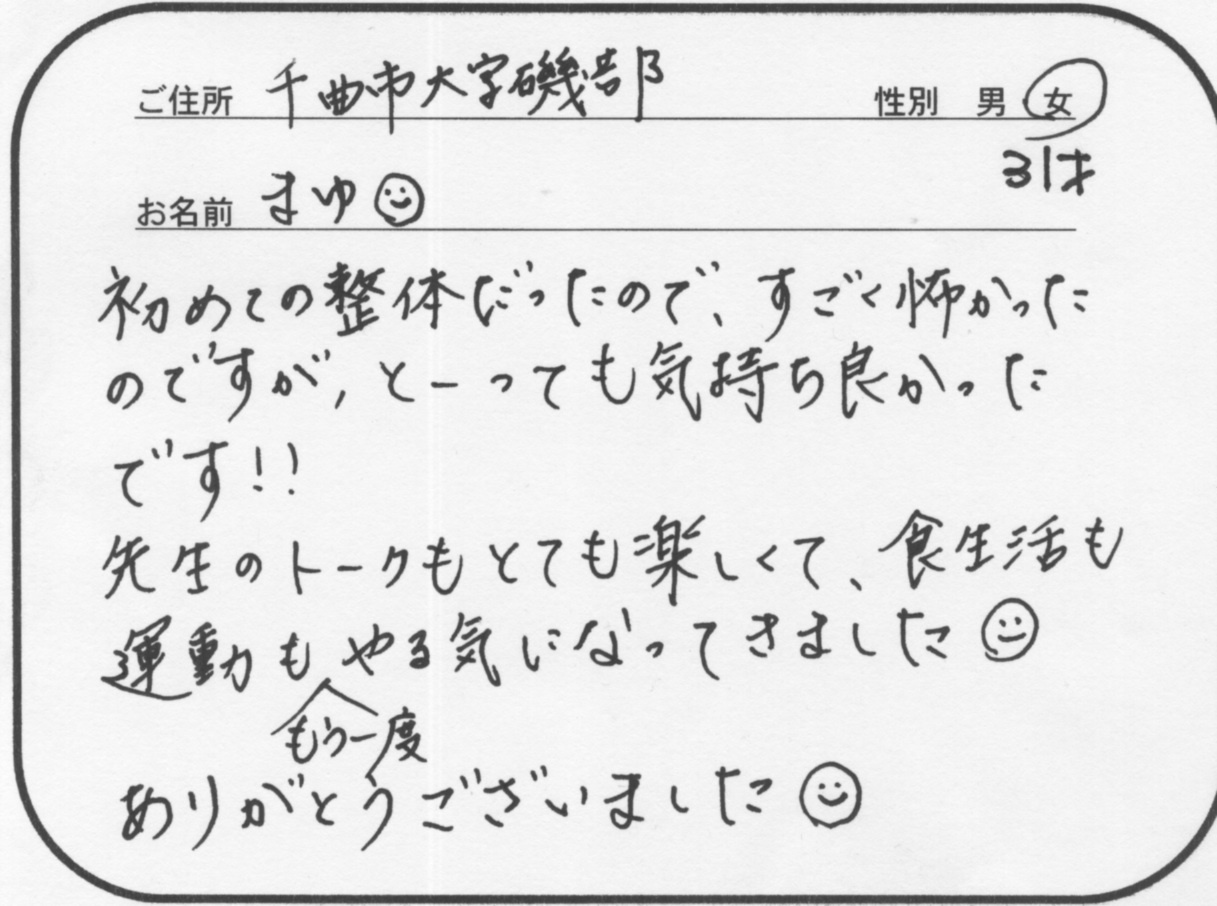 ご住所 千曲市大字磯部 性別 男 女
31才
お名前 まゆ
初めての整体だったので、すごく怖かった
のですが、とーっても気持ち良かった
です!!
先生のトークもとても楽しくて、食生活も
運動もやる気になってきました
もう一度
ありがとうございました